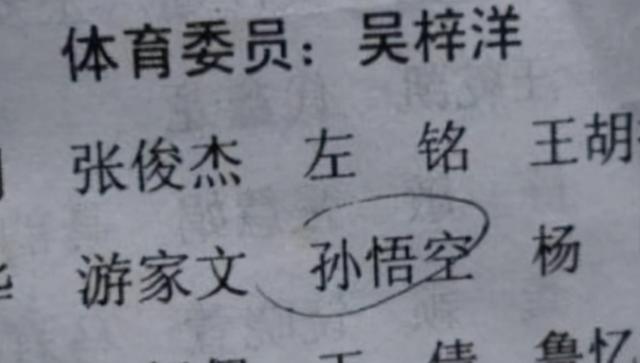 体育委员：吴梓洋
张俊杰 左 铭 王胡
游家文 孙悟空 杨
倩 鲁忆